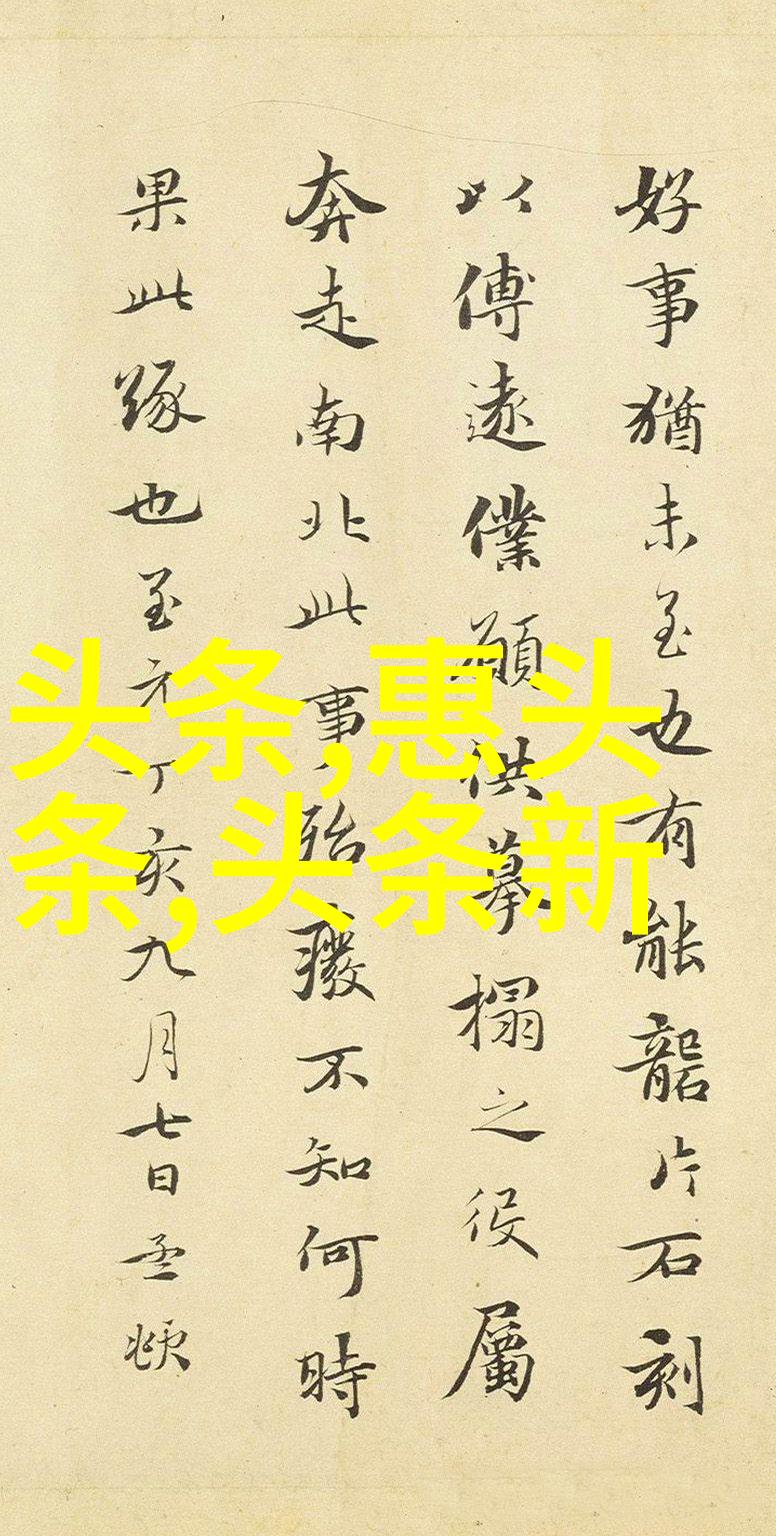 好事猶未至也有能龍片石刻
以傳遠僕願供摹搨之役屬
奔走南北此事殆廢不知何時
果此緣也至元丁亥九月七日孟頫
头条,惠头
条,头条新